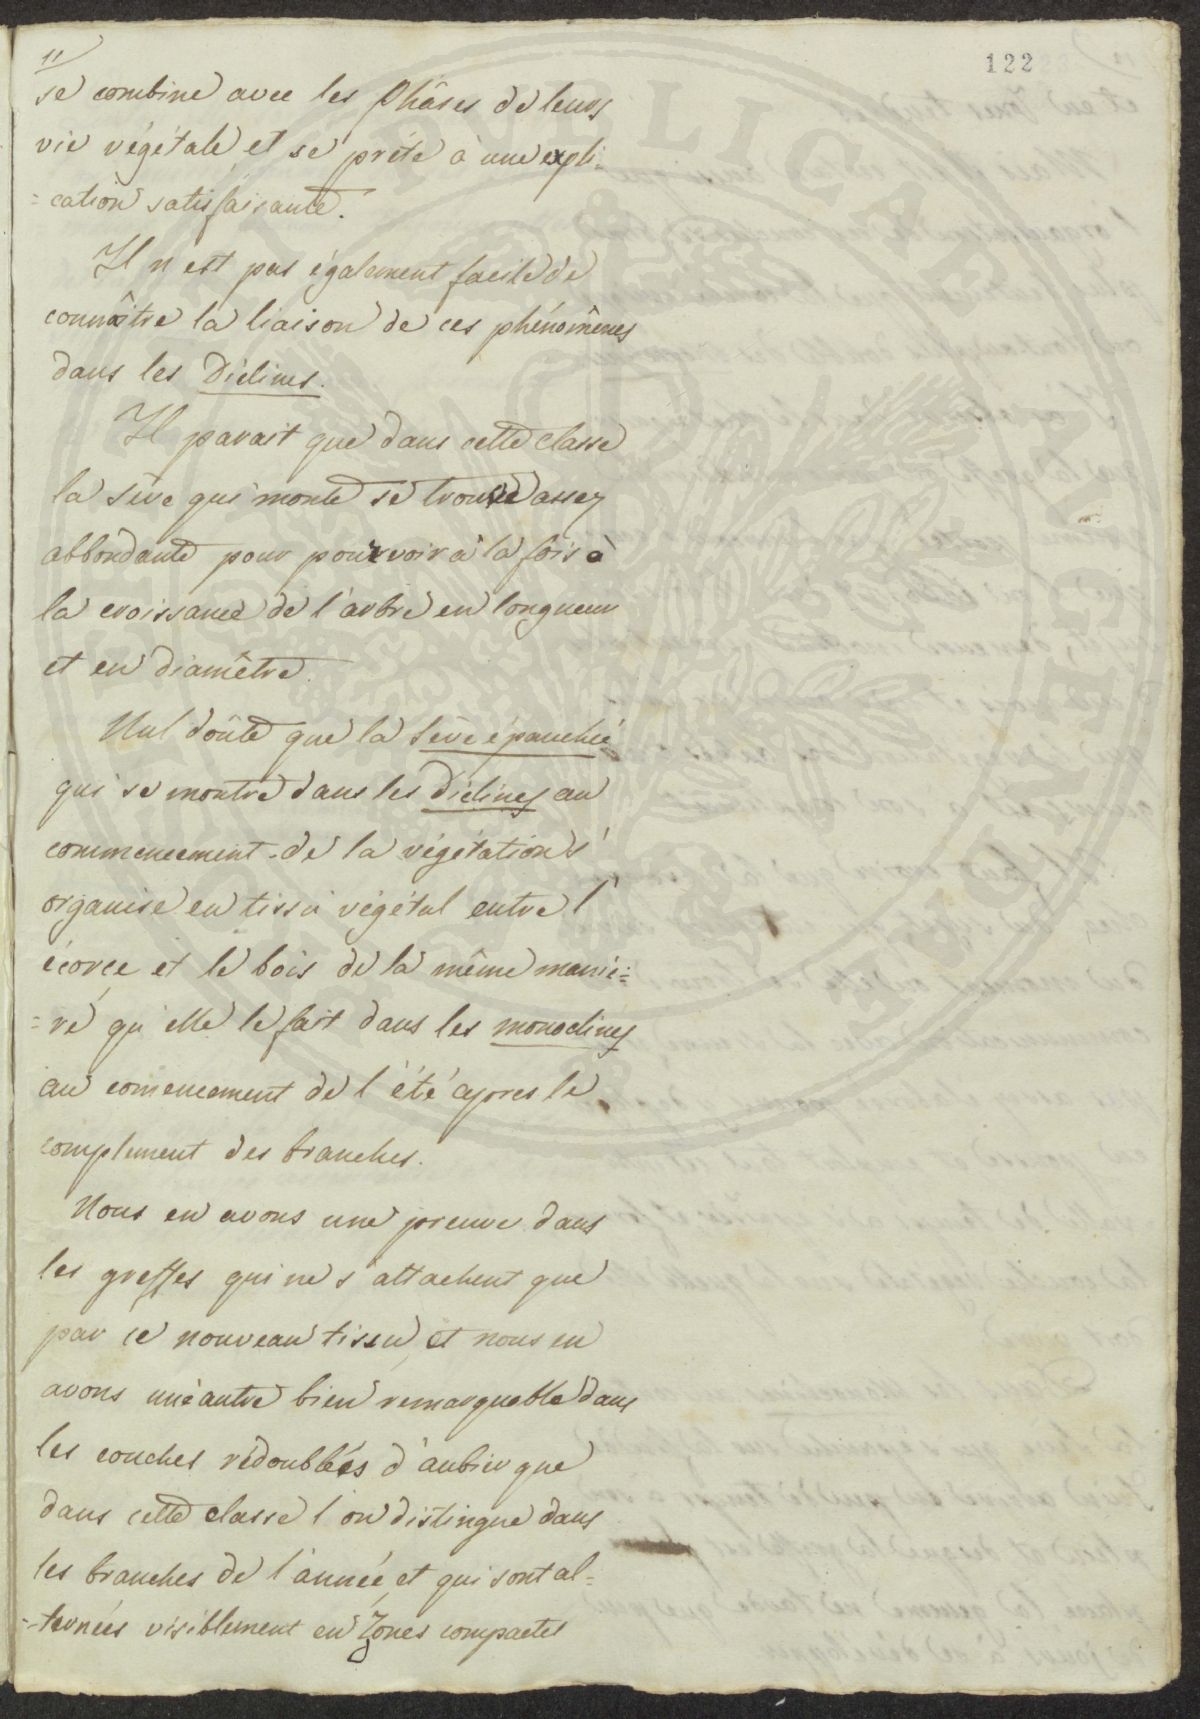 11
122
se combine avec les Phâses de leurs
vie végétale et se prête à une expli-
=cation satisfaisante.
Il n'est pas également facile de
connoître la liaison de ces phénomènes
dans les Diclines.
Il parait que dans cette classe
la sève qui monte se trouve assez
abbondante pour pourvoir à la fois à
la croissance de l'arbre en longueur
et en diamêtre.
Nul doûte que la sève épanchée
qui se montre dans les Diclines au
commencement de la végétation s'
organise en tissu végétal entre l'
écorce et le bois de la même maniè=
=re qu'elle le fait dans les monoclines
au comencement de l'été apres le
complement des branches.
Nous en avons une preuve dans
les greffes qui ne s'attachent que
par ce nouveau tissu, et nous en
avons une autre bien remarquable dans
les couches rédoublées d'aubier que
dans cette classe l'on distingue dans
les branches de l'année, et qui sont al=
=ternées visiblement en zones compactes